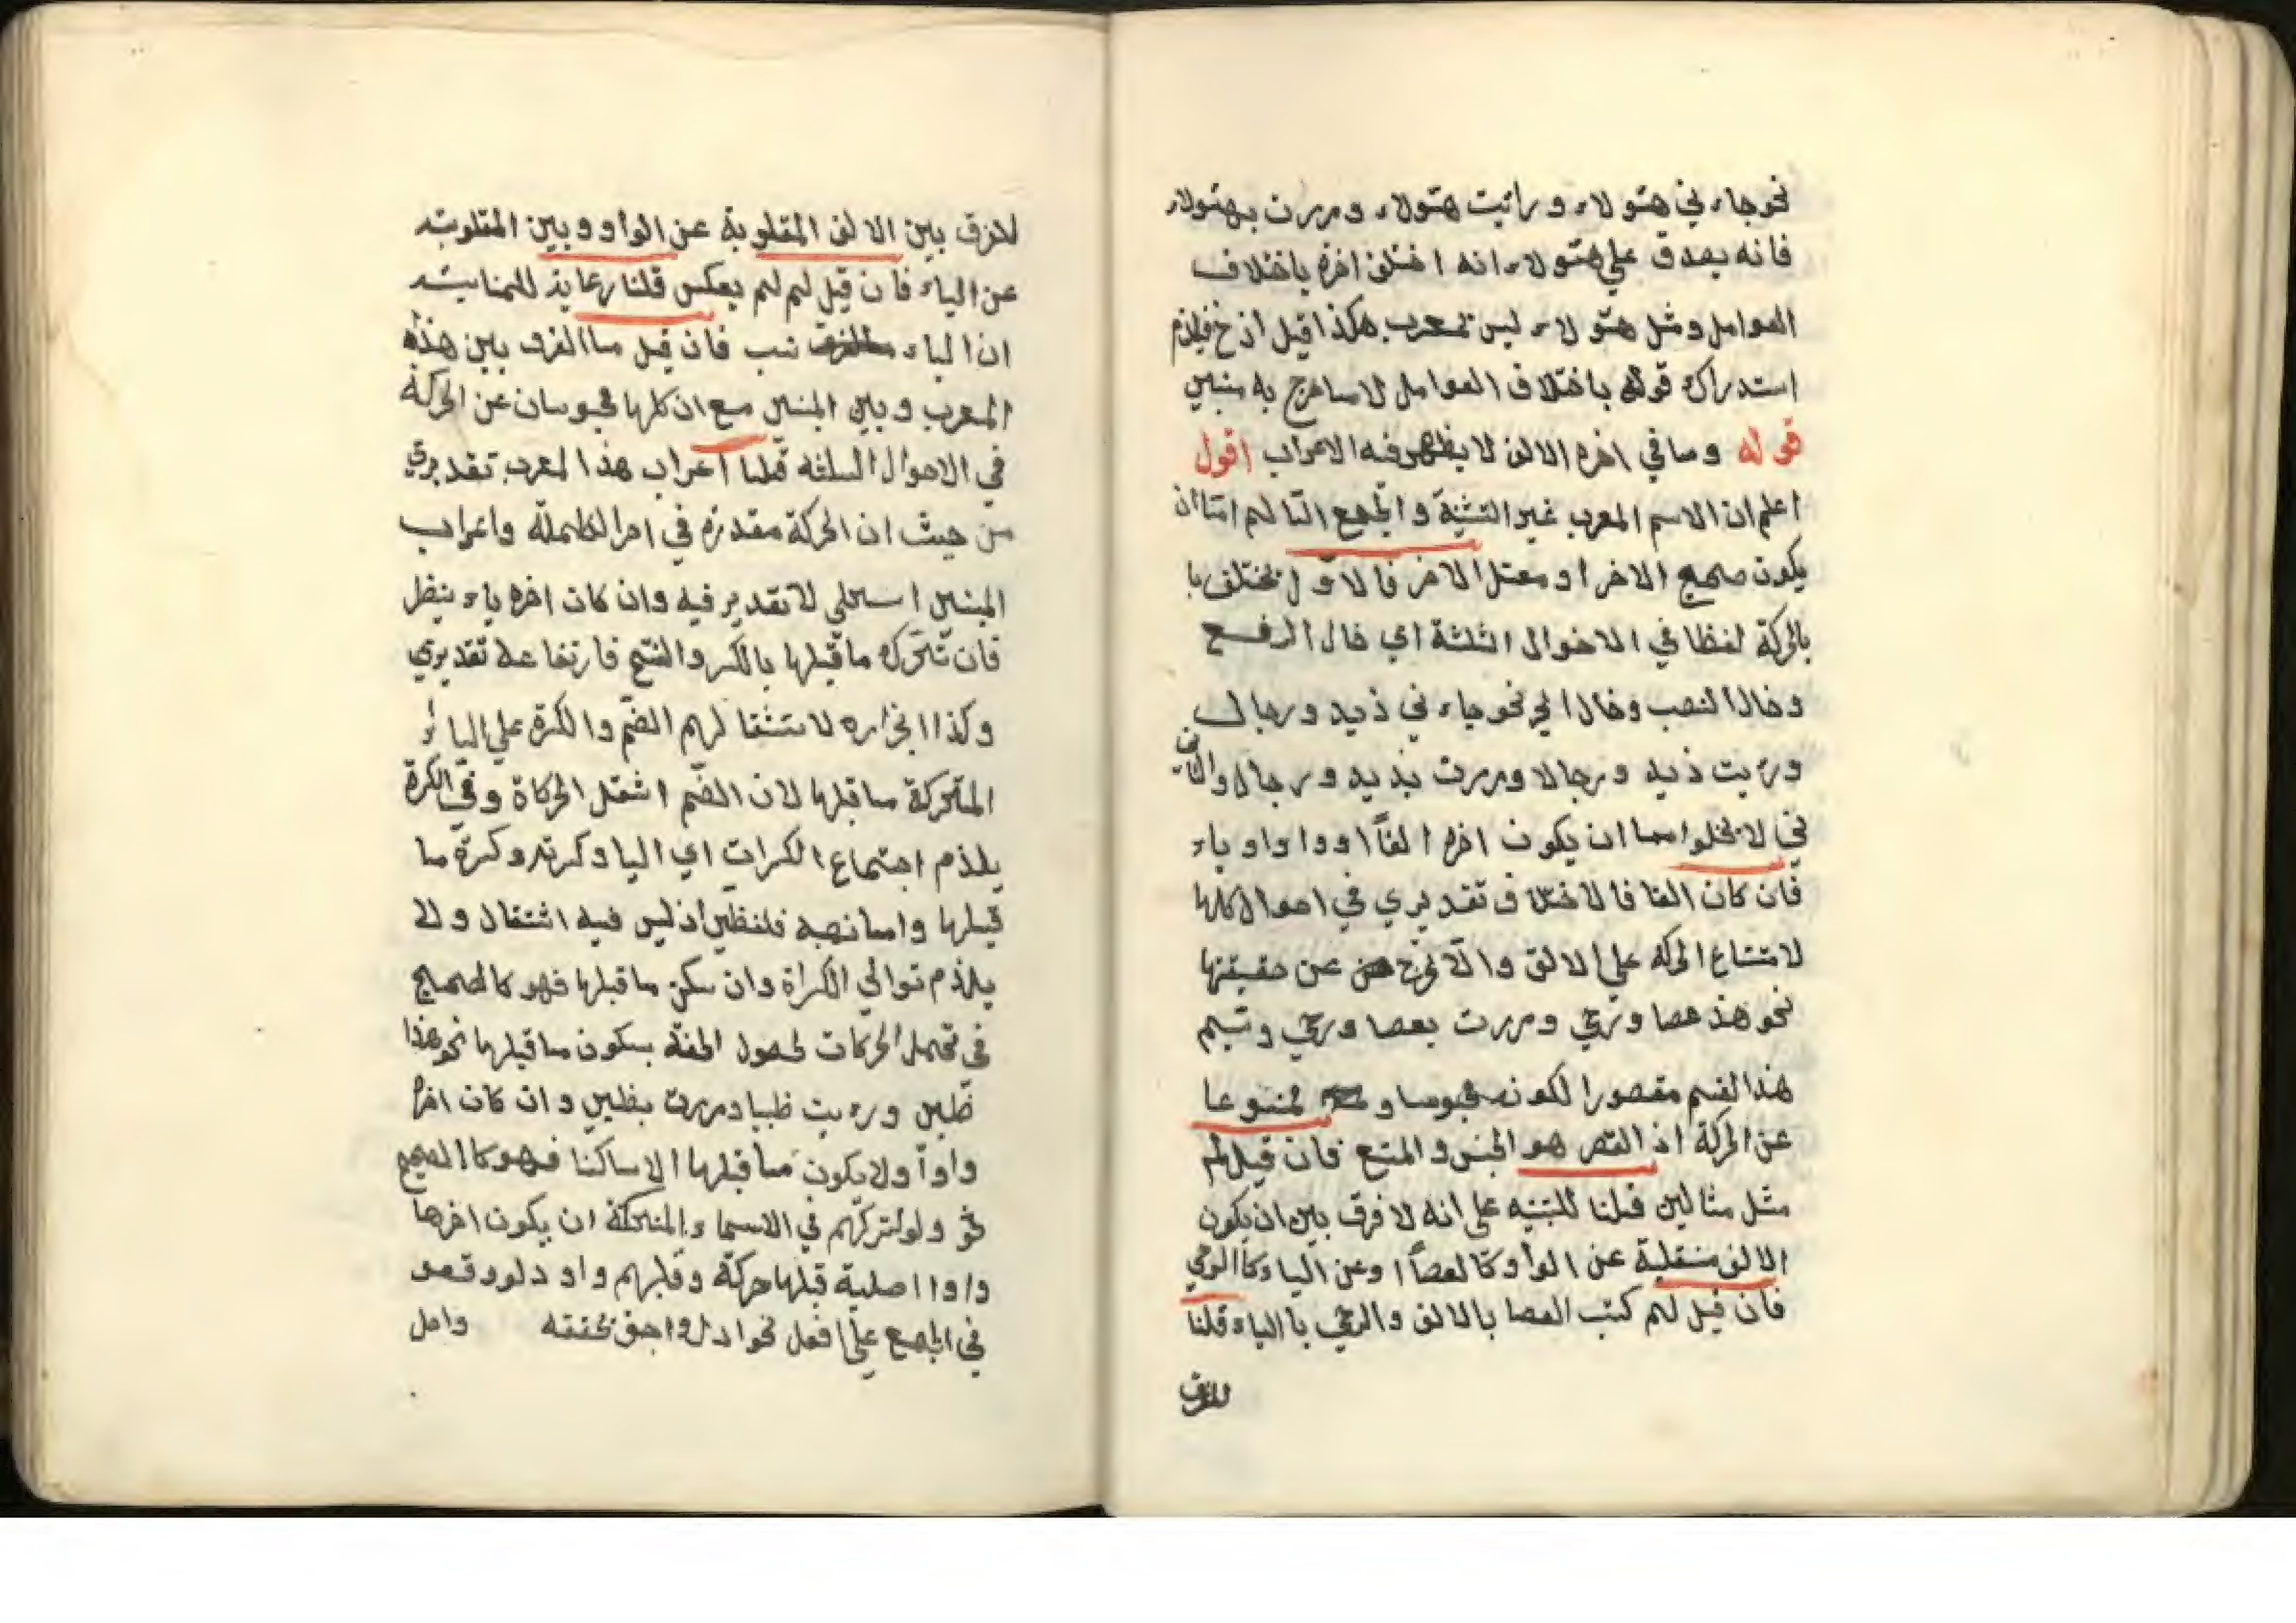 نحو جاء ني هتولاء و رائيت هتولاء ومررت بهتولاء
فانه يصدق علي هتولاء انه اختلف اخره باختلاف
العوامل ومثل هتولاء ليس بمعرب هكذا قيل اذ خ فيلزم
استدراك قوله باختلاف العوامل لا ما خرج به مبنين
قوله وما في اخره الالف لا يظهر فيه الاعراب اقول
اعلم ان الاسم المعرب غير التثنية و الجمع السا لم امّا ان
يكون صحيح الاخر او معتل الاخر فالاوّل يختلف با
بالحركة لفظا في الاخوال الثلثة اي خال الرفع
وخال النصب وخال الجر نحو جاء ني ذيد ورجال
ورءيت ذيد ورجالا ومررت بذيد ورجال والثاني
ني لا يخلوا اما ان يكون اخره الفاً او واوا و ياء
فان كان الفا فالاختلاف تقديري في احوال كلها
لامتناع الحركة علي الالف والّا نخرج عن حقيقتها
نحو هذ عصا ورحي ومررت بعصا ورحي وتسم
هذا القسم مقصورا لكونه محبوسا و ممنوعا
عن الحركة اذ القصر هو الحبس والمنع فان قيل لم
مثل مثالين قلنا للتنبيه علي انه لا فرق بين ان يكون
الالف منقلبة عن الواو كالعصاً او عن الياء كاالرحي
فان قيل لم كتب العصا بالالف والرحي باالياء قلنا
للفرق
للفرق بين الالف المقلوبة عن الواو وبين المقلوبة
عن الياء فان قيل لم لم يعكس قلنا رعاية للمناسبته
ان الياء نسب فان قيل ما الفرق بين هذه
المعرب وبين المبنين مع ان كلها محبوسان عن الحركة
في الاحوال الثلثه قلنا اعراب هذا المعرب تقديري
من حيث ان الحركة مقدرة في اخر الكلمة واعراب
المبنين لا تقدير فيه وان كان اخره ياء ينظر
فان تحرك ما قبلها بالكسر والفتح فارتفاعه تقديري
وكذا انجراره لاستثقا لهم الضم والكسرة علي اليا ء
المتحركة ما قبلها لان الضم اشقل الحركاة وفي الكسرة
يلذم اجتماع الكسرات اي اليا وكسرته وكسرة ما
قبلها واما نصبه فلفظين اذ ليس فيه اشتقال ولا
يلذم توالي الكسراة وان سكن ما قبلها فهو كالصحيح
في تحمل الحركات لحصول الخفة بسكون ما قبلها نحو هذا
ظبين ورءيت ظبيا ومررت بظبين وان كان اخره
واواً ولا يكون ما قبلها الا ساكنا فهو كاالصحيح
نحو ولو لتركهم في الاسماء المتمكنة ان يكون اخرها
واوا اصلية قبلها حركة وقلبهم واو دلو وقعو
في الجمع علي افعل نحو ادل و احق واصل